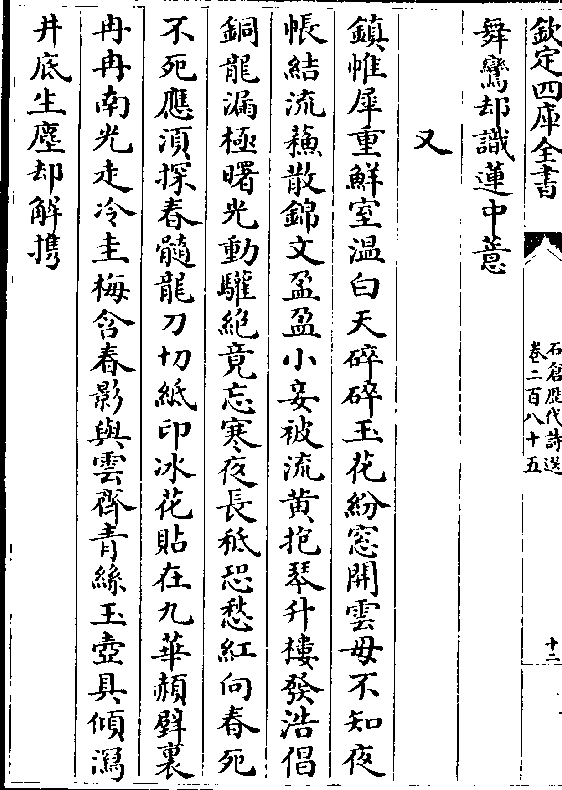 欽定四庫全書
石倉歷代詩選
卷二百八十五
十二
舞鸞却識蓮中薏
又
鎮帷犀重鮮室温白天碎碎玉花紛窓開雲母不知夜
帳結流蘓散錦文盈盈小妾被流黄抱琴升樓發浩倡
銅龍漏極曙光動驩絶竟忘寒夜長秪恐愁紅向春死
不死應湏探春髓龍刀切紙印冰花貼在九華赬壁裏
冉冉南光走冷圭梅含春影與雲齊青絲玉壺具傾瀉
井底生塵却解擕